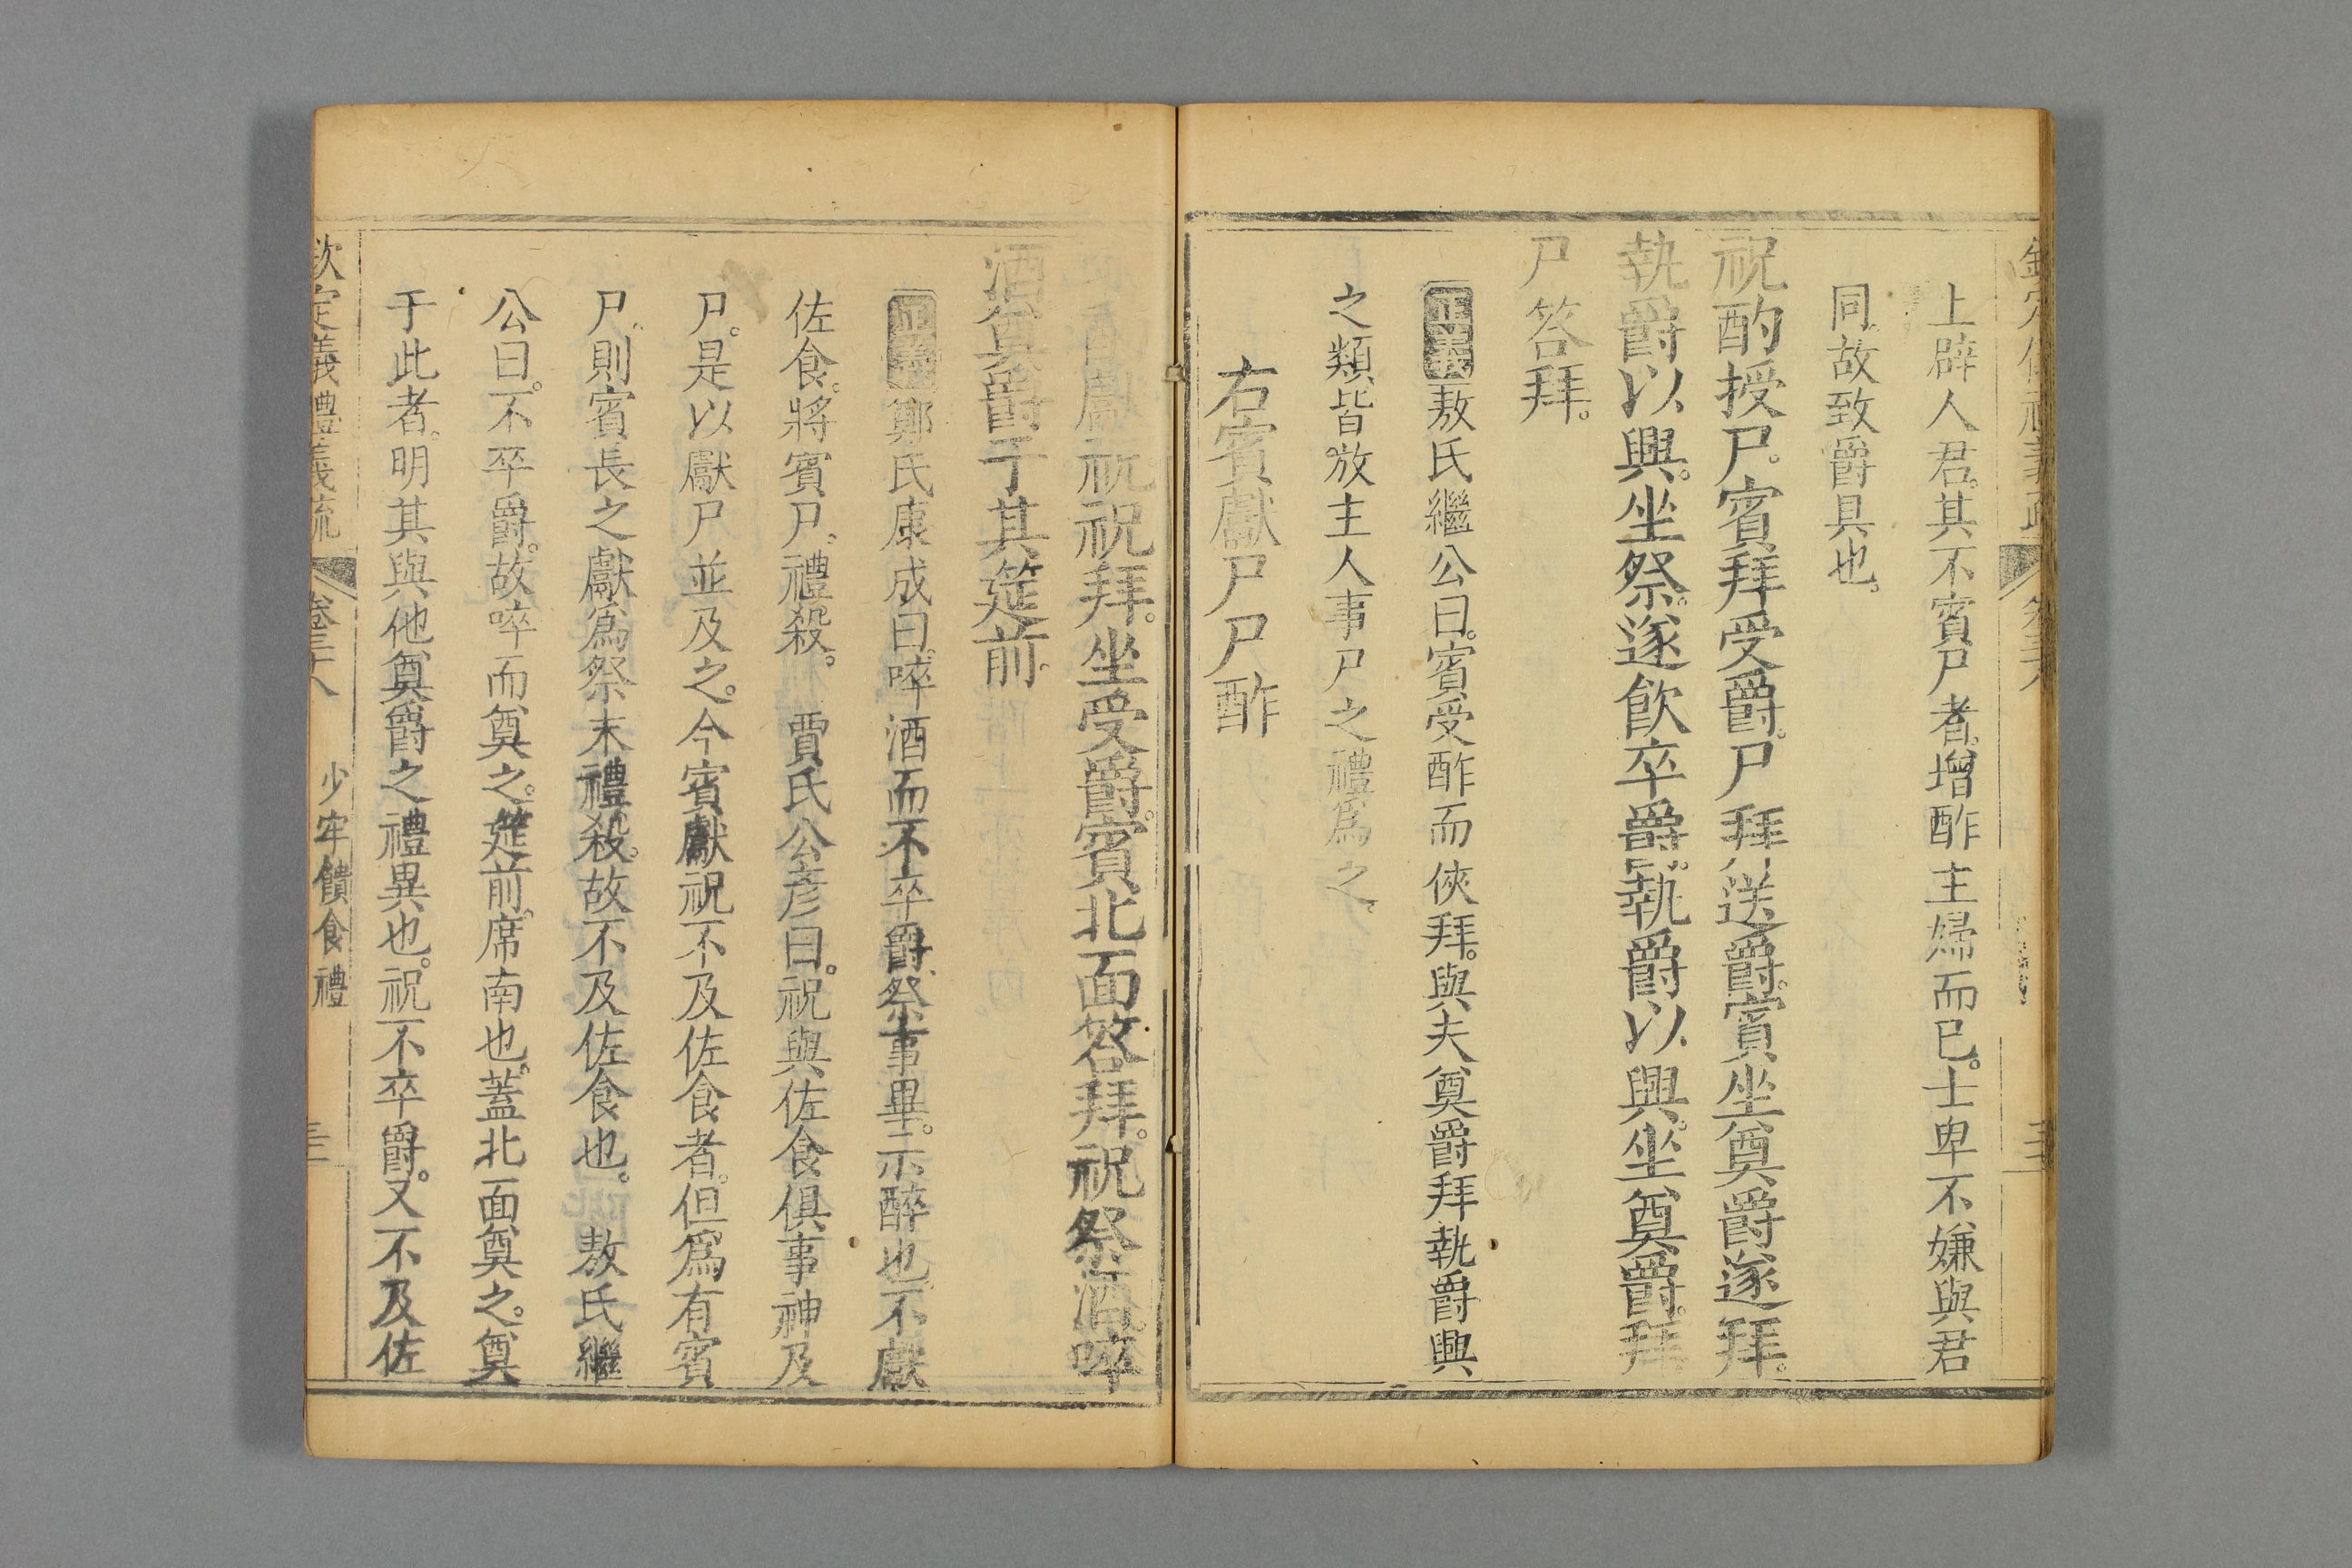 上辟人君其不賓尸者增酢主婦而已。士卑不嫌與君
同。故致爵具也。
祝酌授尸。賓拜受爵。尸拜送爵。賓坐奠爵遂拜。
執爵以興。坐祭。遂飲卒爵。執爵以興。坐奠爵。拜。
尸答拜。
正義敖氏繼公曰。賓受酢而俠拜。與夫奠爵拜執爵興
之類皆放主人事尸之禮爲之。
右賓獻尸尸酢
賓獻祝祝拜。坐受爵。賓北面答拜。祝祭酒。啐
酒。奠爵于其筵前。
正義鄭氏康成曰。啐酒而不卒爵。祭事畢。示醉也。不獻
佐食。將賓尸。禮殺。賈氏公彥曰。祝與佐食俱事神及
尸。是以獻尸並及之。今賓獻祝不及佐食者。但爲有賓
尸。則賓長之獻爲祭末禮殺。故不及佐食也。敖氏繼
公曰。不卒爵。故啐而奠之。筵前。席南也。蓋北面奠之。奠
于此者。明其與他奠爵之禮異也。祝不卒爵。又不及佐
欽定義禮義疏 卷三十八 少牢饋食禮